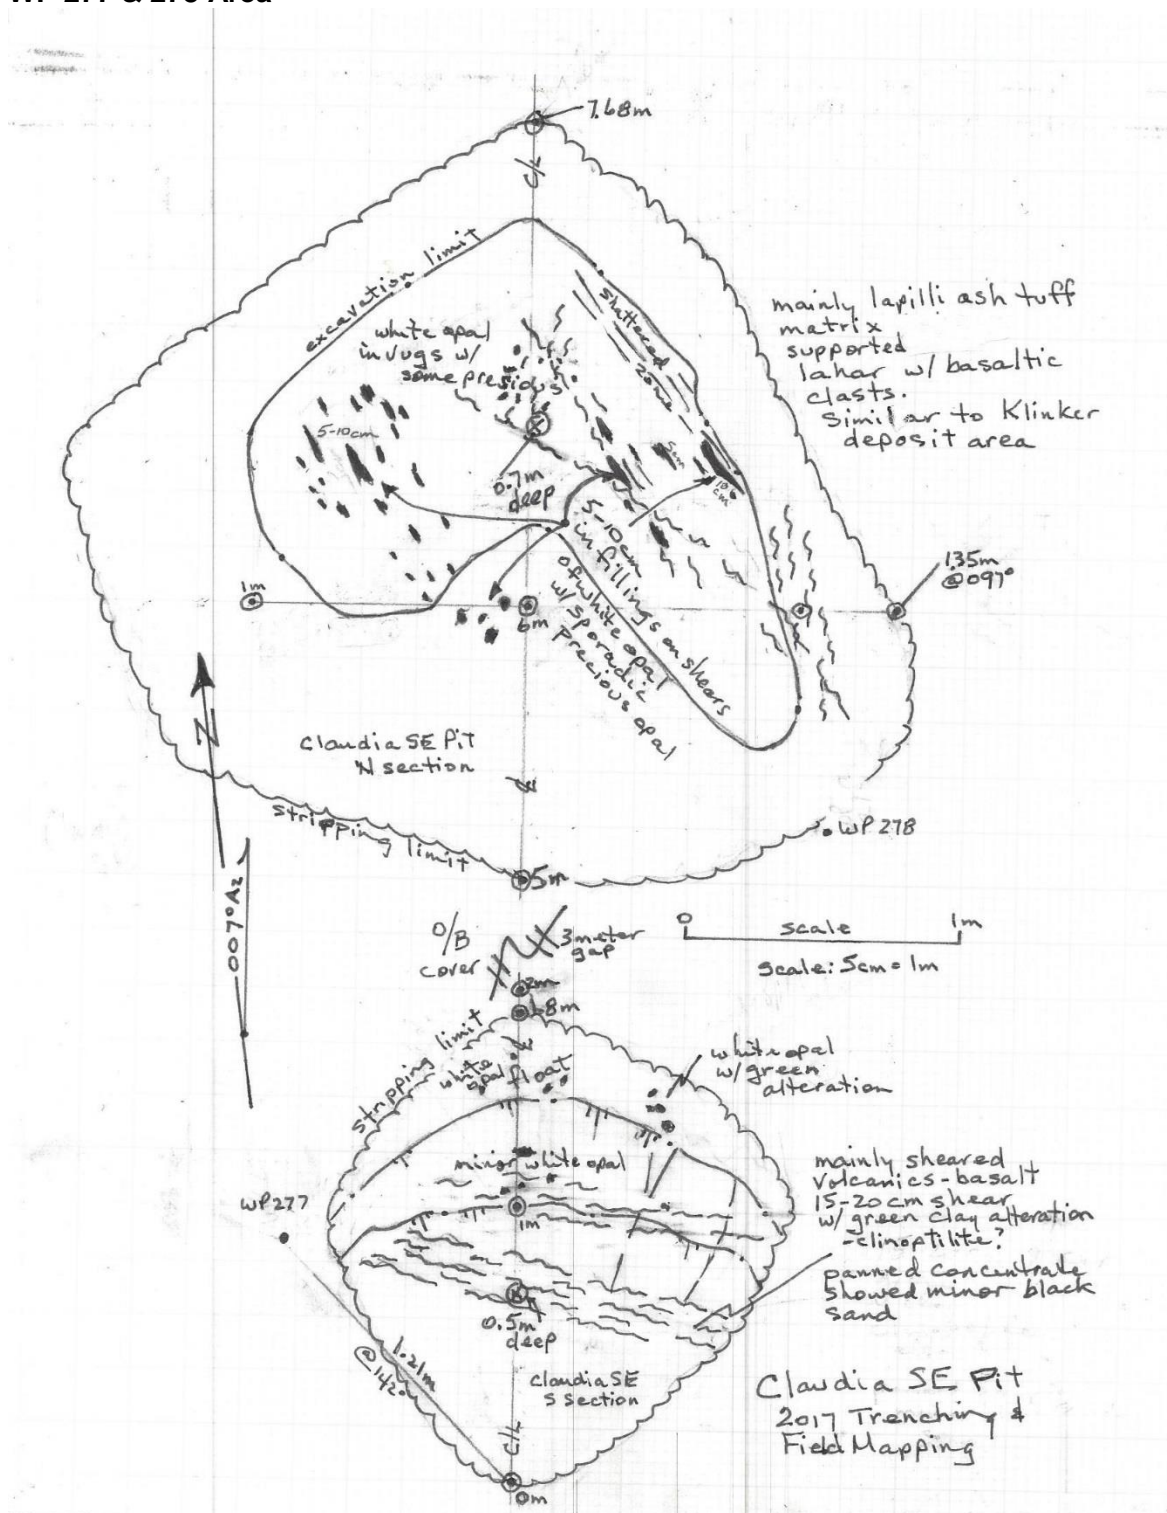 7.68m
C/L
excavation limit
shattered
zone
white opal
in vugs w/
some presious
mainly lapilli ash tuff
matrix
supported
lahar w/ basaltic
clasts.
Similar to Klinker
deposit area
5-10cm
5cm
10
cm
0.7m
deep
5-10cm
infillings on shears
of white opal
w/ sporadic
precious opal
1.35m
@097°
1m
6m
N
Claudia SE Pit
N section
stripping limit
WP 278
5m
007° Az
O/B
cover
3 meter
gap
0
scale
1m
scale: 5cm = 1m
2m
1.68m
stripping limit
white
opal float
white opal
w/ green
alteration
minor white opal
WP 277
1m
mainly sheared
volcanics - basalt
15-20 cm shear
w/ green clay alteration
- clinoptilite?
panned concentrate
showed minor black
sand
0.5m
deep
1.21m
@142°
Claudia SE
S section
C/L
0m
Claudia SE Pit
2017 Trenching &
Field Mapping